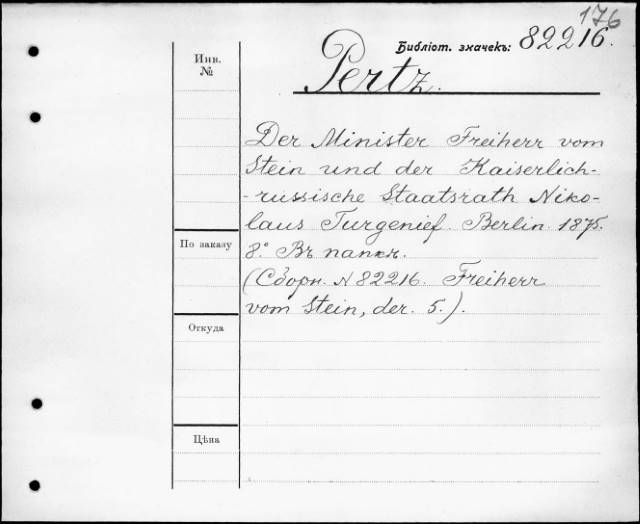 176
Библіот. значекъ: 82216.
Инв.
№
Pertz.
Der Minister Freiherr vom
Stein und der Kaiserlich-
-russische Staatsrath Niko-
laus Turgenief. Berlin. 1875.
8.° Въ папкѣ.
(Сборн. № 82216. Freiherr
vom Stein, der. 5.).
По заказу
Откуда
Цѣна